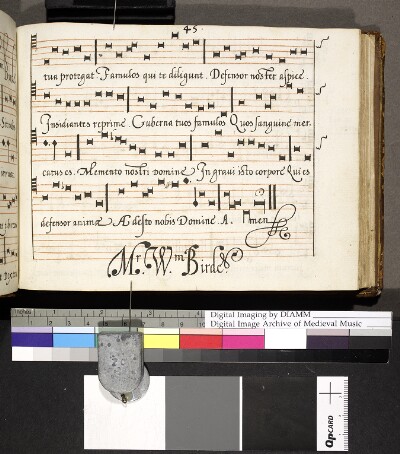 45.
tua protegat Famulos qui te diligunt. Defensor noster aspice.
Insidiantes reprime Guberna tuos famulos Quos sanguine mer-
catus es. Memento nostri Domine In gravi isto corpore Qui es
defensor animæ Adesto nobis Domine. A. Amen
Mr. Wm. Birde
Digital Imaging by DIAMM
Digital Image Archive of Medieval Music
QPCARD